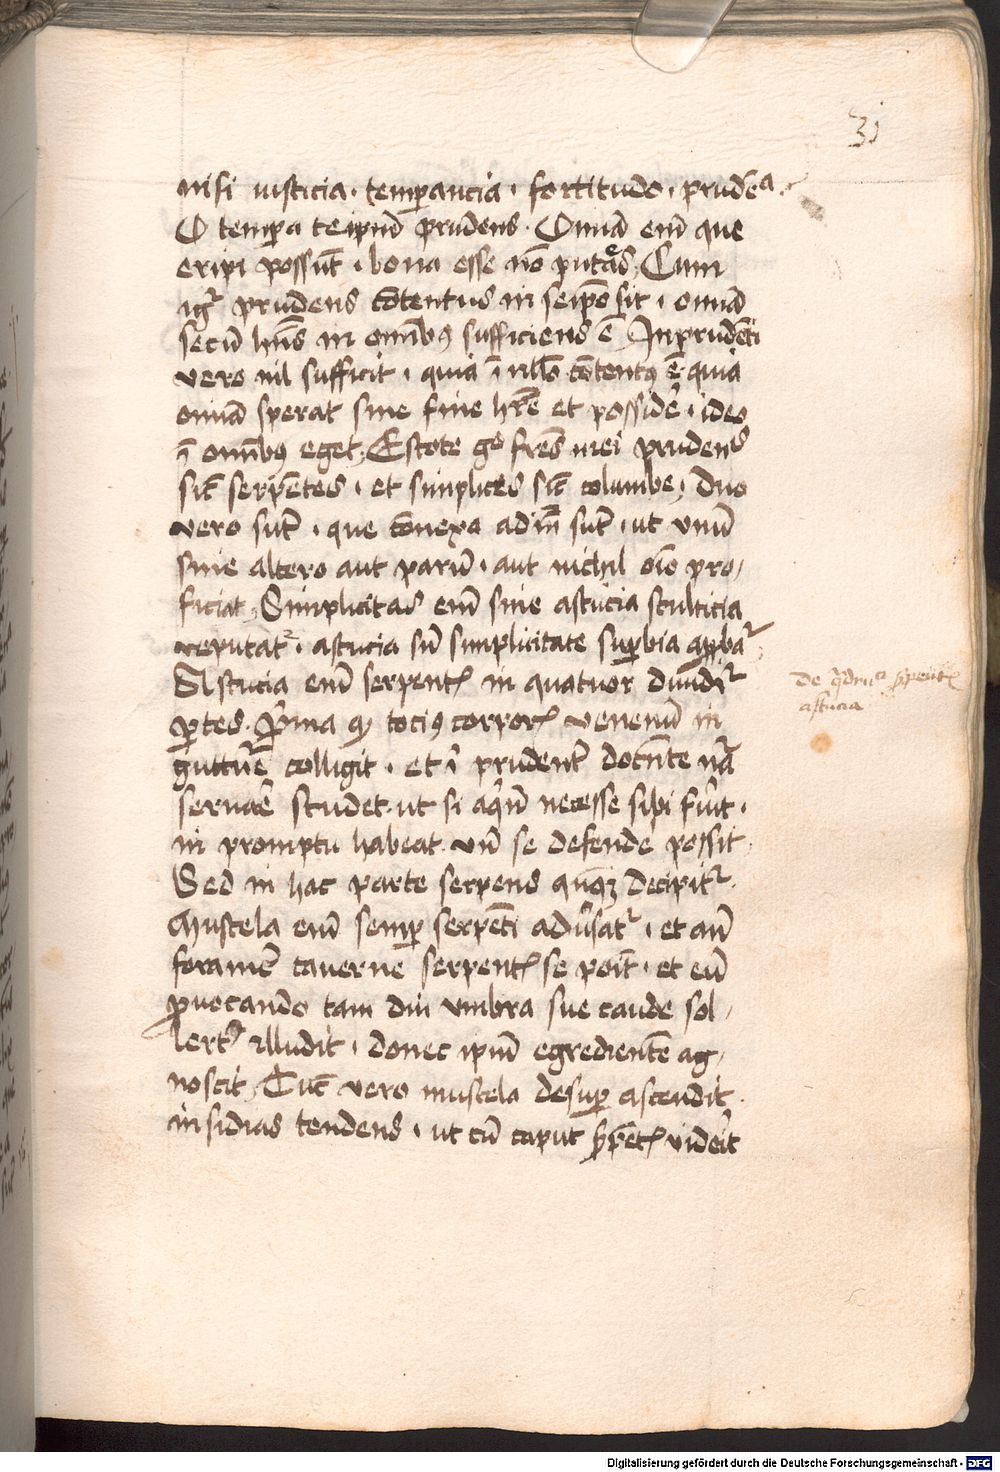 31
nisi iusticia · temperancia · fortitudo · prudēa ·
O tempera teipm̄ prudens · Omia em̄ que
eripi possūt · bona esse nō putas, Cum
igr̄ prudens cōtentus in seipo sit · omia
secū hns in omib9 sufficiens ē Inprudēti
vero nil sufficit · quia ī nllo cōtent9 ē quia
omia sperat sine fine hrē et possidē · ideo
ī omib9 eget, Estote go frēs mei prudens
sic̄ serpētes · et simplices sic̄ columbe, Duo
vero sūt · que cōnexa adinuicē sūt · ut vnū
sine altero aut parū · aut nichil oīo pro/
ficiat, Simplicitas em̄ sine astucia stulticia
reputat᷑ · astucia sn̄ simplicitate supbia appbat᷑
Astucia em̄ serpentꝭ in quatuor diuidit᷑
ptes · Pma qꝫ toci9 corporꝭ venenū in
gutturē colligit · et ī prudent᷑ docn̄te nā
seruaē studet · ut si aqn̄ necesse sibi fuit ·
in promptu habeat · vn̄ se defende possit
Sed in hac parte serpens qnqꝫ decipit᷑ ·
Mustela em̄ semp serpēti aduersat᷑ · et an̄
foramē cauerne serpentꝭ se poīt · et eū
puocando tam diu vmbra sue caude sol/
lert᷑ illudit · donec ipm̄ egredientē ag/
noscit, Tūc vero mustela desup ascendit ·
insidias tendens · ut cū caput serpētꝭ videit
De qdruᵃ serpentꝭ
astucia
Digitalisierung gefördert durch die Deutsche Forschungsgemeinschaft · DFG